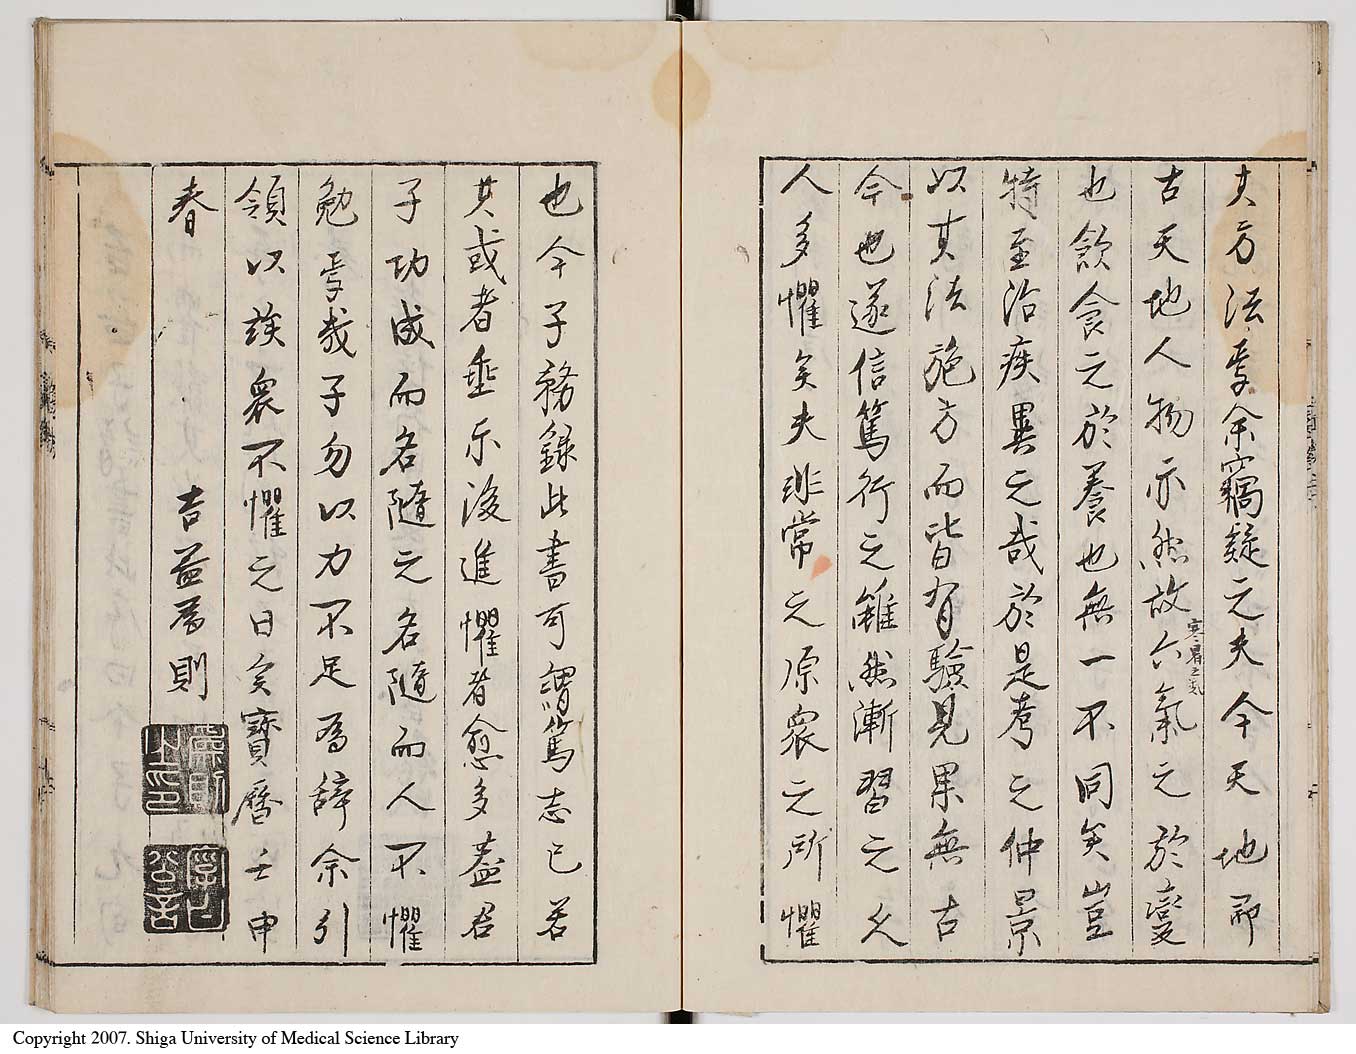 其方法焉余竊疑之夫今天地即
古天地人物亦然故六氣之於變
寒暑之気
也飲食之於養也無一不同矣豈
特至治疾異之哉於是考之仲景
以其法施方而皆有驗見果無古
今也遂信篤行之雖然漸習之久
人多懼矣夫非常之原衆之所懼
也今子務錄此書可謂篤志已若
其或者垂示後進懼者愈多蓋君
子功成而名隨之名隨而人不懼
勉焉哉子勿以力不足為辭余引
領以俟衆不懼之日矣寶曆壬申
春
吉益為則
為則
之印
公言
Copyright 2007. Shiga University of Medical Science Library